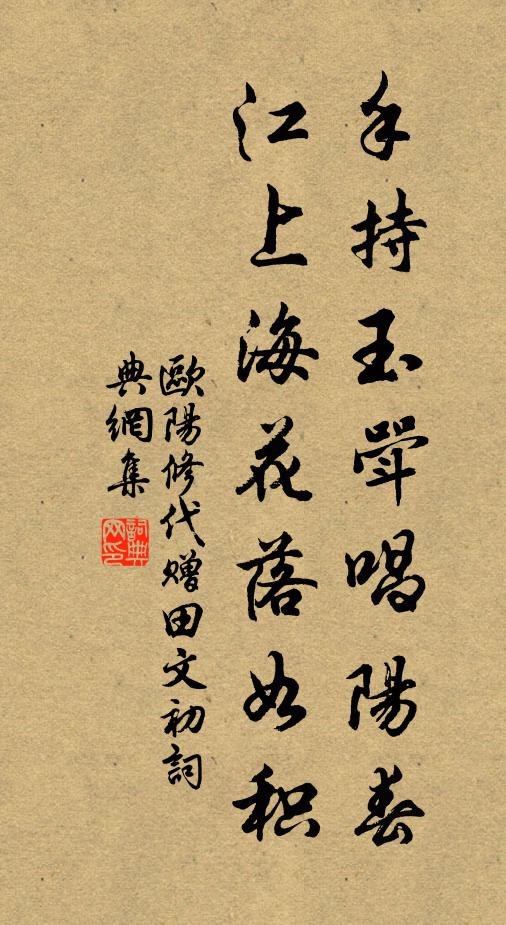 手持玉斝唱陽春
江上海花落如积
歐陽修代贈田文初詞
典網集
詞典
网印